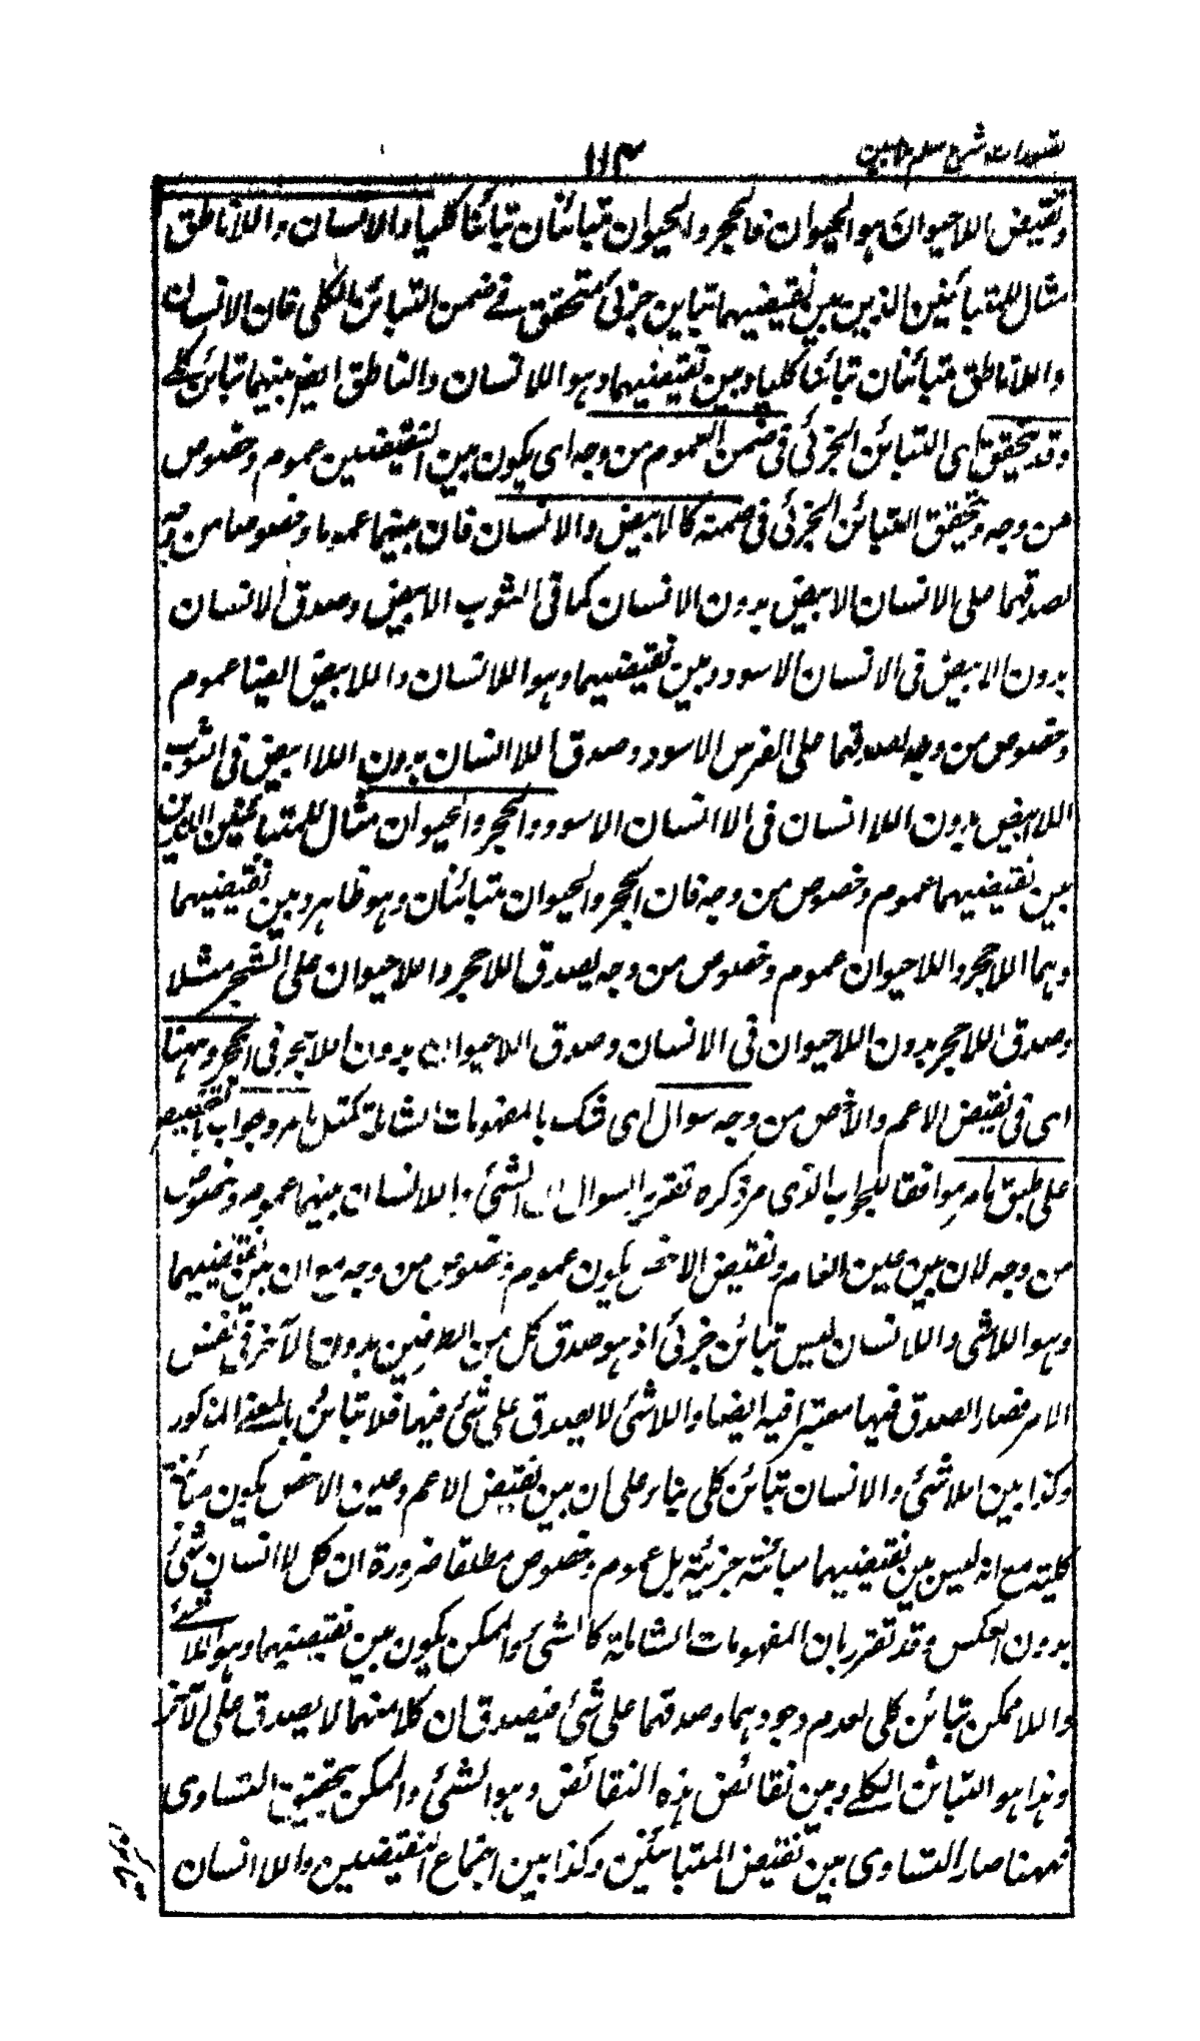 تصورات شرح سلم ملا مبين
١١٣
ونقيض اللاحيوان هو الحيوان فالحجر والحيوان متبائنان تبائنا كليا والانسان واللاناطق
مثال للمتبائنين الذين بين نقيضيهما تباين جزئى متحقق فى ضمن التبائن الكلى فان الانسان
واللاناطق متبائنان تبائنا كليا وبين نقيضيهما وهو اللاانسان والناطق ايضر بينهما تبائن كلى
وقد يتحقق اى التبائن الجزئى فى ضمن العموم من وجه اى يكون بين النقيضين عموم وخصوص
من وجه وتحقق التبائن الجزئى فى ضمنه كالابيض والانسان فان بينهما عموما وخصوصا من وجه
لصدقهما على الانسان الابيض بدون الانسان كما فى الثوب الابيض وصدق الانسان
بدون الابيض فى الانسان الاسود وبين نقيضيهما وهو اللاانسان واللاابيض ايضا عموم
وخصوص من وجه لصدقهما على الفرس الاسود وصدق اللاانسان بدون اللاابيض فى الثوب
اللاابيض بدون اللاانسان فى الاانسان الاسود والحجر والحيوان مثال للمتبائنين الذين
بين نقيضيهما عموم وخصوص من وجه فان الحجر والحيوان متبائنان وهو ظاهر وبين نقيضيهما
وهما اللاحجر واللاحيوان عموم وخصوص من وجه يصدق اللاحجر واللاحيوان على الشجر مثلا
وصدق اللاحجر بدون اللاحيوان فى الانسان وصدق اللاحيوان بدون اللاحجر فى الحجر وههنا
اى فى نقيض الاعم والاخص من وجه سوال اى شك بالمفهومات الشاملة كمثل ما مر وجواب بالتخصيص
على طبق ما مر موافقا للجواب الذى مر ذكره تقرير السوال ان الشئ واللاانسان بينهما عموم وخصوص
من وجه لان بين عين العام ونقيض الاخص يكون عموم وخصوص من وجه مع ان بين نقيضيهما
وهو اللاشى واللاانسان ليس تبائن جزئى اذ هو صدق كل من الطرفين بدون الآخر فى نفس
الامر فصار الصدق فيها معتبرا فيه ايضا واللاشئ لا يصدق على شئ فيهما فلا تبائن بالمعنى المذكور
وكذا بين اللاشئ والانسان تبائن كلى بناء على ان بين نقيض الاعم وعين الاخص يكون مبائنة
كلية مع انه ليس بين نقيضيهما مبائنة جزئية بل عموم وخصوص مطلقا ضرورة ان كل لاانسان شئ
بدون العكس وقد تقرر بان المفهومات الشاملة كالشئ والممكن يكون بين نقيضيهما وهو اللاشئ
واللاممكن تبائن كلى لعدم وجودهما وصدقهما على شئ فيصدق ان كلا منهما لا يصدق على الآخر
وهذا هو التبائن الكلى وبين نقائض هذه النقائض وهو الشئ والممكن يتحقق التساوى
فههنا صار التساوى بين نقيض المتبائنين وكذا بين اجتماع النقيضين واللاانسان